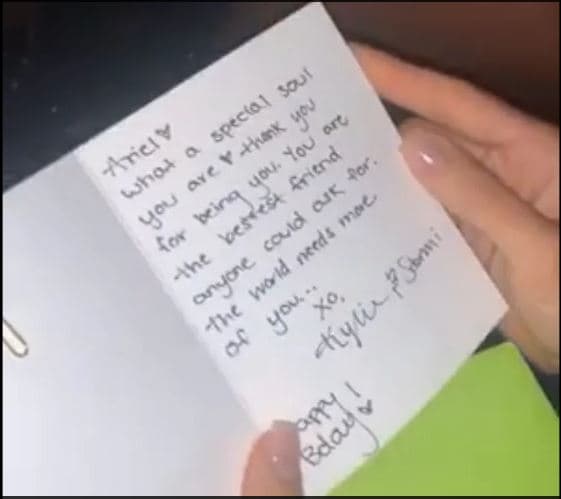 Ariel♥
what a special soul
you are ♥ thank you
for being you. You are
the bestest friend
anyone could ask for.
the world needs more
of you...
xo,
Kylie & Stormi
Happy
Bday!